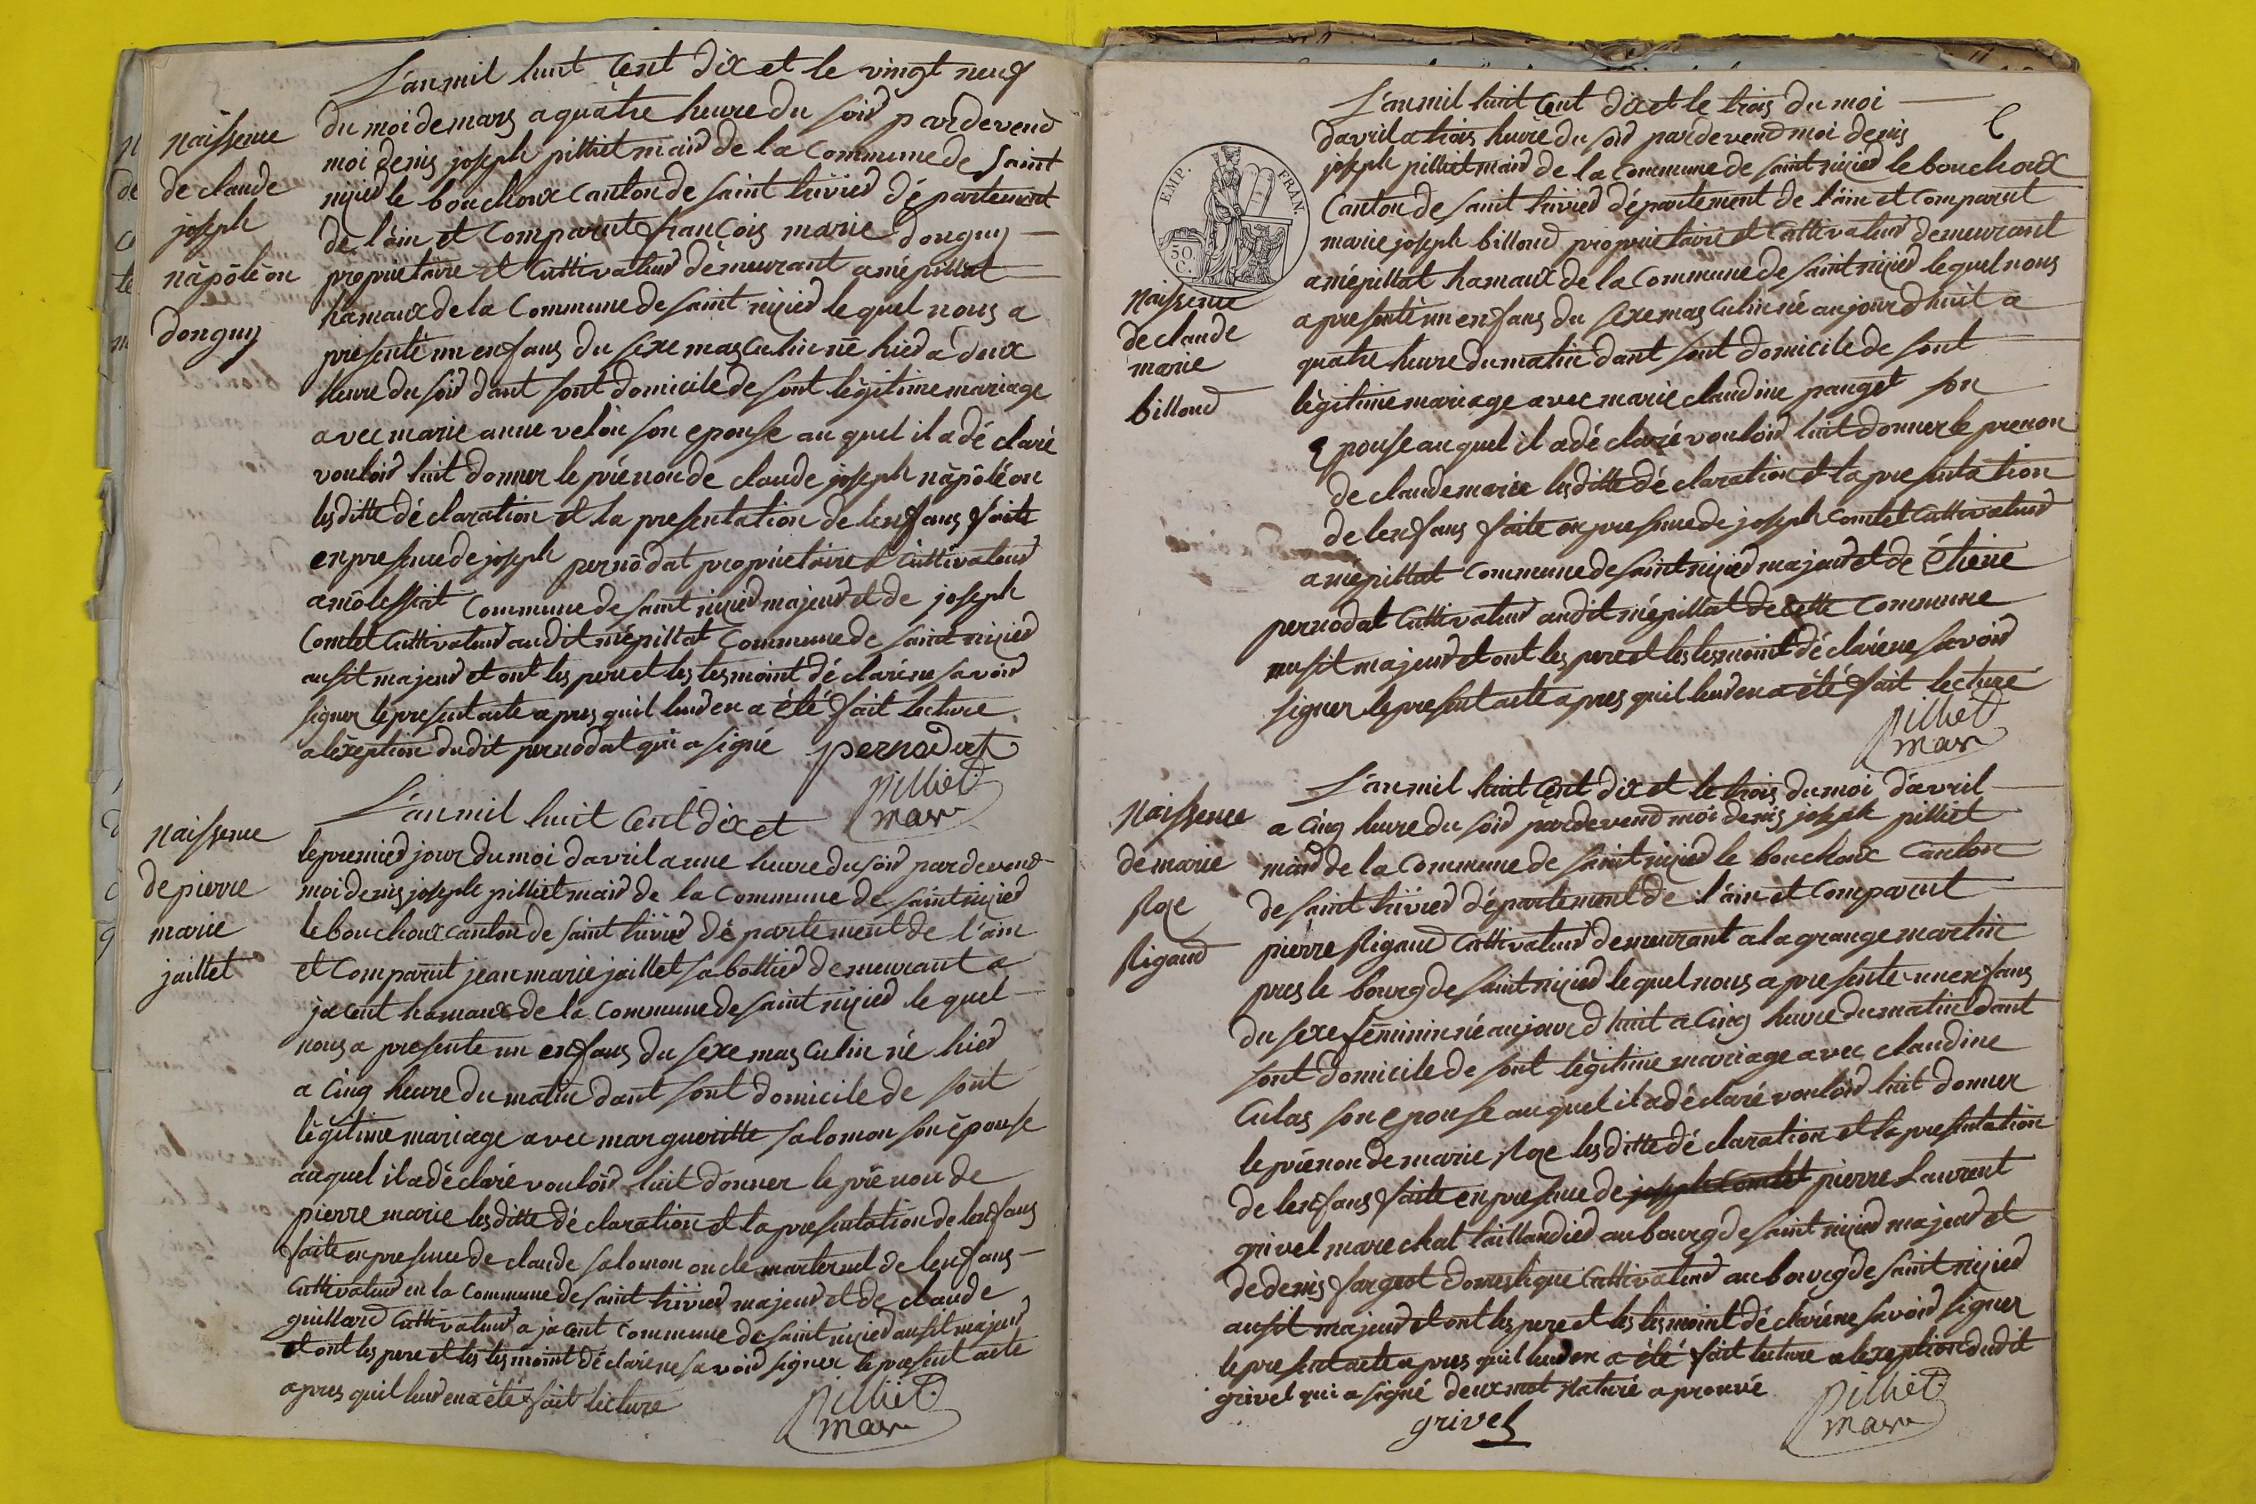 L'an mil huit Cent dix et le vingt neuf
du moi de mars a quatre heure du soir par devend
moi denis joseph pilliet mair de la Commune de saint
nizier le bouchoux Canton de saint trivier département
de l'ain et Comparut françois marie donguy
proprietaire et Cultivateur demeurant a mépillat
hamaux de la Commune de saint nizier le quel nous a
presenté un enfans du sexe masculin né hier a deux
heure du soir dant sont domicile de sont légitime mariage
avec marie anne velon son epouse au quel il a déclaré
vouloir luit donner le prénon de claude joseph nâpôléon
les ditte déclaration et la presentation de lenfans faite
en presence de joseph pernodat proprietaire et Cultivateur
a môlessiat Commune de saint nizier majeur et de joseph
Comtet Cultivateur audit mépillat Commune de saint nizier
ausit majeur et ont les pere et les tesmoint déclaré ne savoir
signer le present acte apres quil leur en a été fait lecture
a lexeption dudit pernodat qui a signé pernodat
pilliet
mair
naissence
de claude
joseph
nâpôléon
donguy
L'an mil huit Cent dix et
le premier jour du moi d'avril a une heure du soir par devend
moi denis joseph pilliet mair de la Commune de saint nizier
le bouchoux canton de saint trivier département de l'ain
et Comparut jean marie jaillet sabottier demeurant a
jacent hamaux de la Commune de saint nizier le quel
nous a presente un enfans du sexe masculin né hier
a Cinq heure du matin dant sont domicile de sont
légitime mariage avec margueritte salomon son épouse
auquel il a déclaré vouloir luit donner le prénon de
pierre marie les ditte déclaration et la presentation de lenfans
faite en presence de claude salomon oncle marternel de lenfans
Cultivateur en la Commune de saint trivier majeur et de claude
guillard Cultivateur a jacent Commune de saint nizier ausit majeur
et ont les pere et les tesmoint déclaré ne savoir signer le present acte
apres quil leur en a été fait lecture
pilliet
mair
naissence
de pierre
marie
jaillet
L'an mil huit Cent dix et le trois du moi
davril a trois heure du soir par devend moi denis
joseph pilliet mair de la Commune de saint nizier le bouchoux
Canton de saint trivier département de l'ain et Comparut
marie joseph billoud proprietaire et Cultivateur demeurant
a mépillat hamaux de la Commune de saint nizier le quel nous
a presenté un enfans du sexe masculin né aujourdhuit a
quatre heure du matin dant sont domicile de sont
légitime mariage avec marie claudine panget son
Epouse au quel il a déclaré vouloir luit donner le prenon
de claude marie les ditte déclaration et la presentation
de lenfans faite en presence de joseph Comtet Cultivateur
a mépillat Commune de saint nizier majeur et de Étiene
pernodat Cultivateur audit mépillat de cette Commune
ausit majeur et ont les pere et les tesmoint déclaré ne savoir
signer le present acte apres quil leur en a été fait lecture
pilliet
mair
EMP. FRAN.
50
C.
naissence
de claude
marie
billoud
L'an mil huit Cent dix et le trois du moi d'avril
a Cinq heure du soir par devend moi denis joseph pilliet
mair de la Commune de saint nizier le bouchoux Canton
de saint trivier département de l'ain et Comparut
pierre Rigaud Cultivateur demeurant a la grange martin
pres le bourg de saint nizier le quel nous a presente un enfans
du sexe féminin né aujourdhuit a Cinq heure du matin dant
sont domicile de sont légitime mariage avec claudine
Culas son epouse au quel il a déclaré vouloir luit donner
le prénon de marie Roze les ditte déclaration et la presentation
de lenfans faite en presence de joseph Comtet pierre Laurent
grivel marechal taillandier au bourg de saint nizier majeur et
de denis fargeot domestique Cultivateur au bourg de saint nizier
ausit majeur et ont les pere et les tesmoint déclaré ne savoir signer
le present acte apres quil leur en a été fait lecture a lexeption dudit
grivel qui a signé deux mot Raturé aprouvé
grivel
pilliet
mair
naissence
de marie
Roze
Rigaud